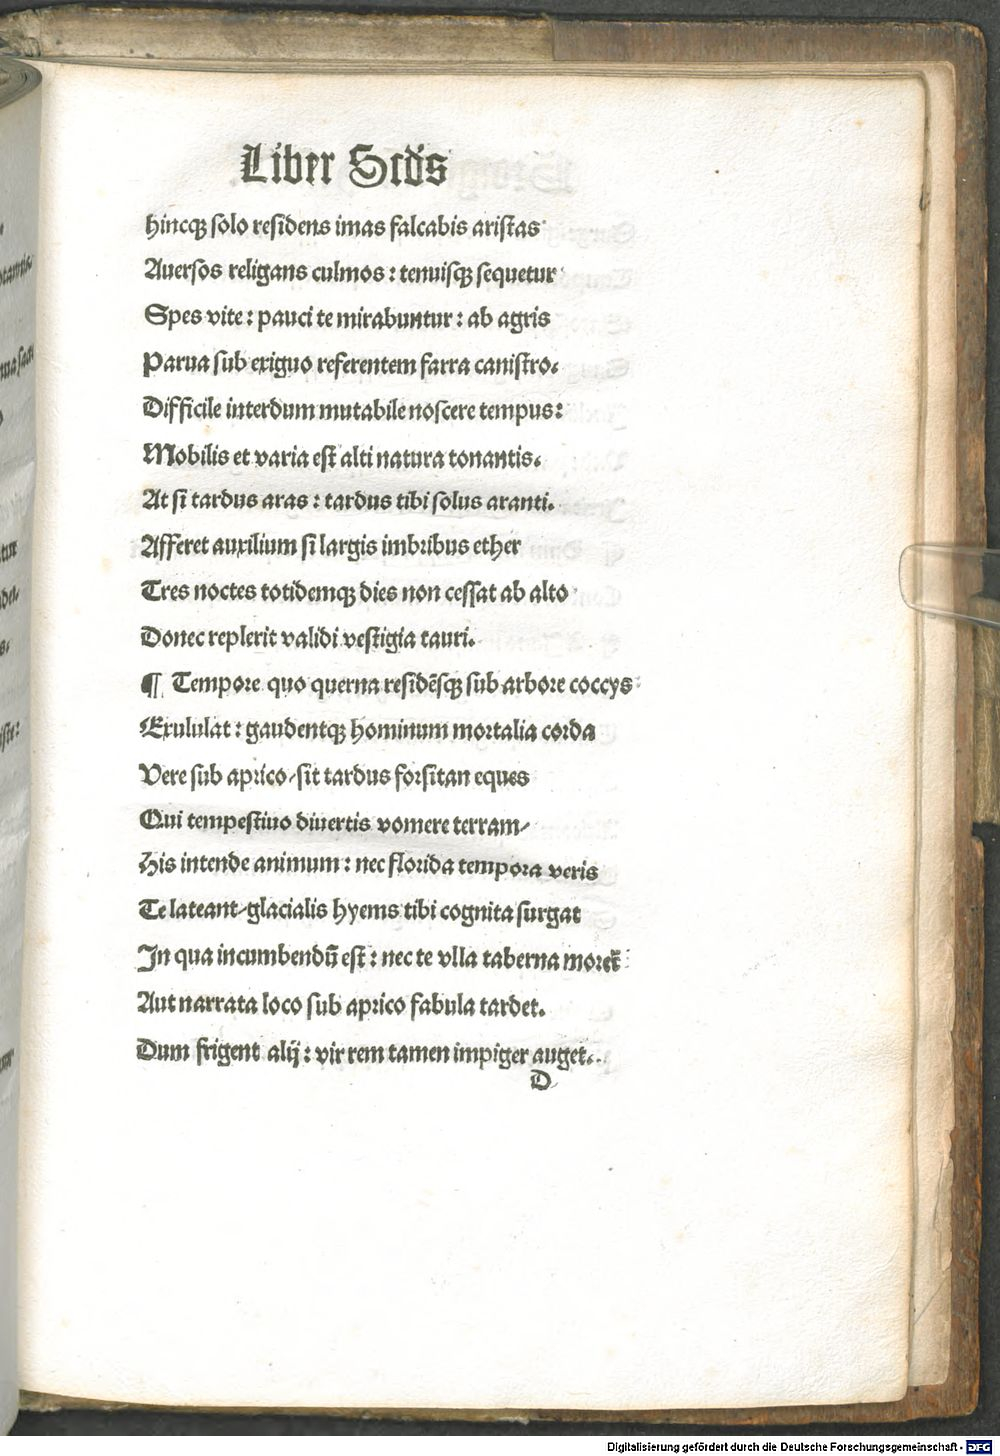 Liber Scd̄s
hincq̃ solo residens imas falcabis aristas
Auersos religans culmos : tenuisq̃ sequetur
Spes vite : pauci te mirabuntur : ab agris
Parua sub exiguo referentem farra canistro.
Difficile interdum mutabile noscere tempus :
Mobilis et varia est alti natura tonantis.
At si tardus aras : tardus tibi solus aranti.
Afferet auxilium si largis imbribus ether
Tres noctes totidemq̃ dies non cessat ab alto
Donec replerit validi vestigia tauri.
¶ Tempore quo querna residēsq̃ sub arbore coccys
Exululat : gaudentq̃ hominum mortalia corda
Vere sub aprico/sit tardus forsitan eques
Qui tempestiuo diuertis vomere terram/
His intende animum : nec florida tempora veris
Te lateant/glacialis hyems tibi cognita surgat
In qua incumbendū est : nec te vlla taberna moret᷑
Aut narrata loco sub aprico fabula tardet.
Dum frigent alij : vir rem tamen impiger auget.
D
Digitalisierung gefördert durch die Deutsche Forschungsgemeinschaft - DFG